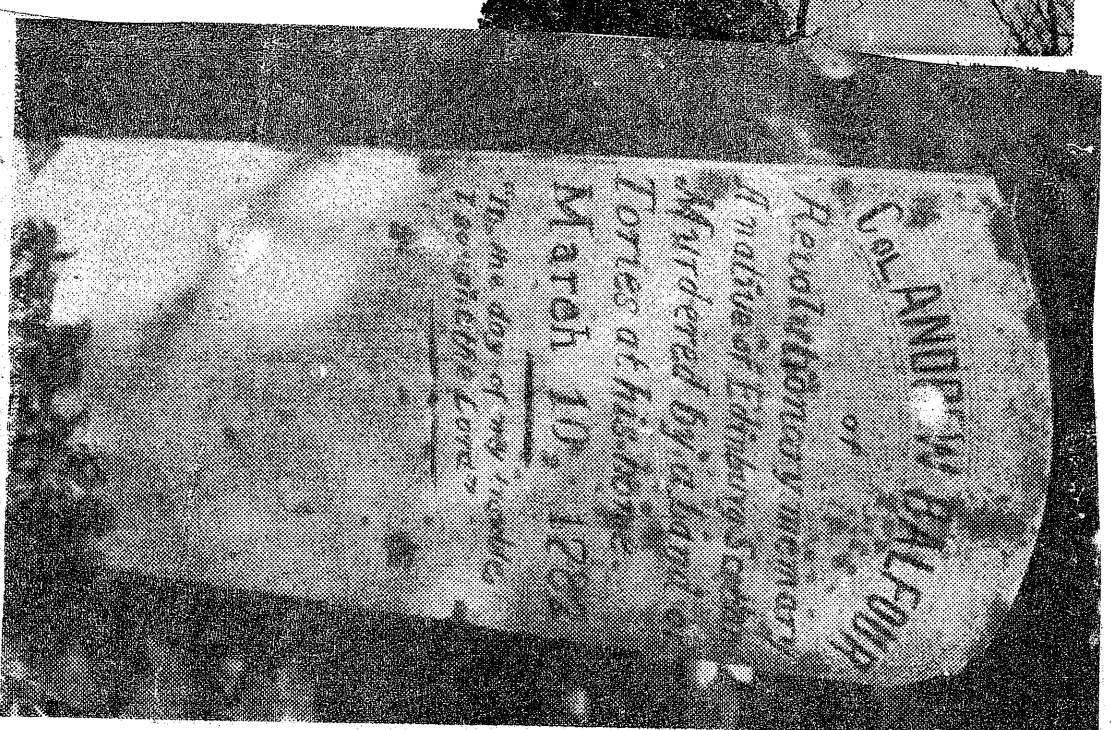 Col. ANDREW BALFOUR
of
Revolutionary memory
A native of Edinburg Scotl
Murdered by a band of
Tories at his home
March 10, 1782
"In the day of my trouble
I sought the Lord"